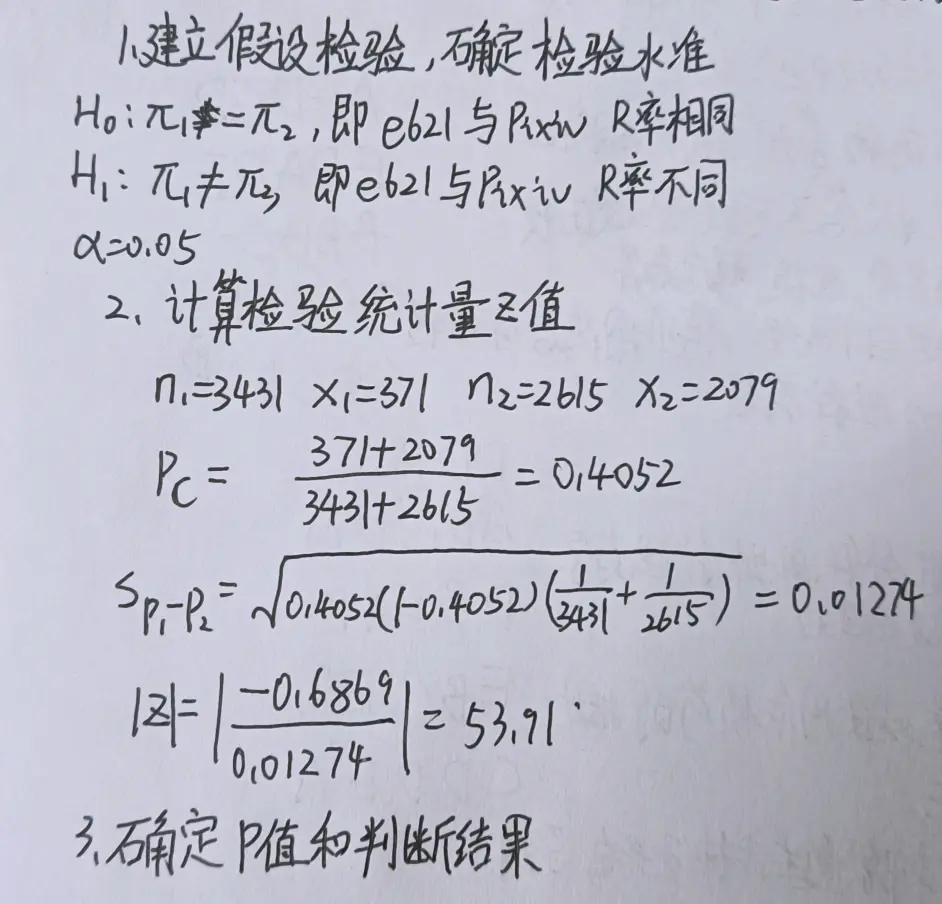 1.建立假设检验,确定检验水准
H₀:π₁=π₂,即e621与Pixiv R率相同
H₁:π₁≠π₂,即e621与Pixiv R率不同
α=0.05
2、计算检验统计量Z值
n₁=3431 x₁=371 n₂=2615 x₂=2079
P_C= (371+2079)/(3431+2615) =0.4052
S_{P₁-P₂}=√(0.4052(1-0.4052)(1/3431+1/2615)) =0.01274
|Z|=|-0.6869/0.01274|=53.91
3、确定P值和判断结果